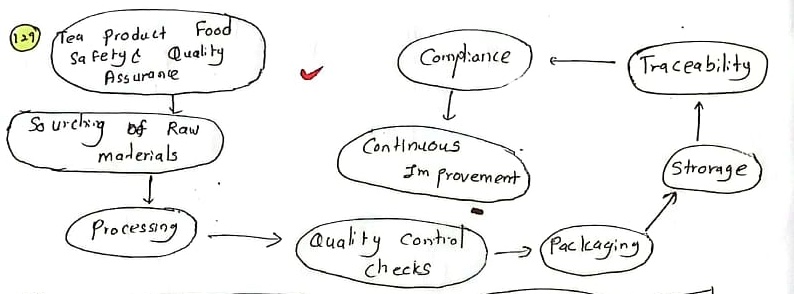 129
Tea Product Food
Safety & Quality
Assurance
Sourching of Raw
materials
Processing
Quality Control
Checks
Packaging
Strorage
Traceability
Compliance
Continuous
Improvement